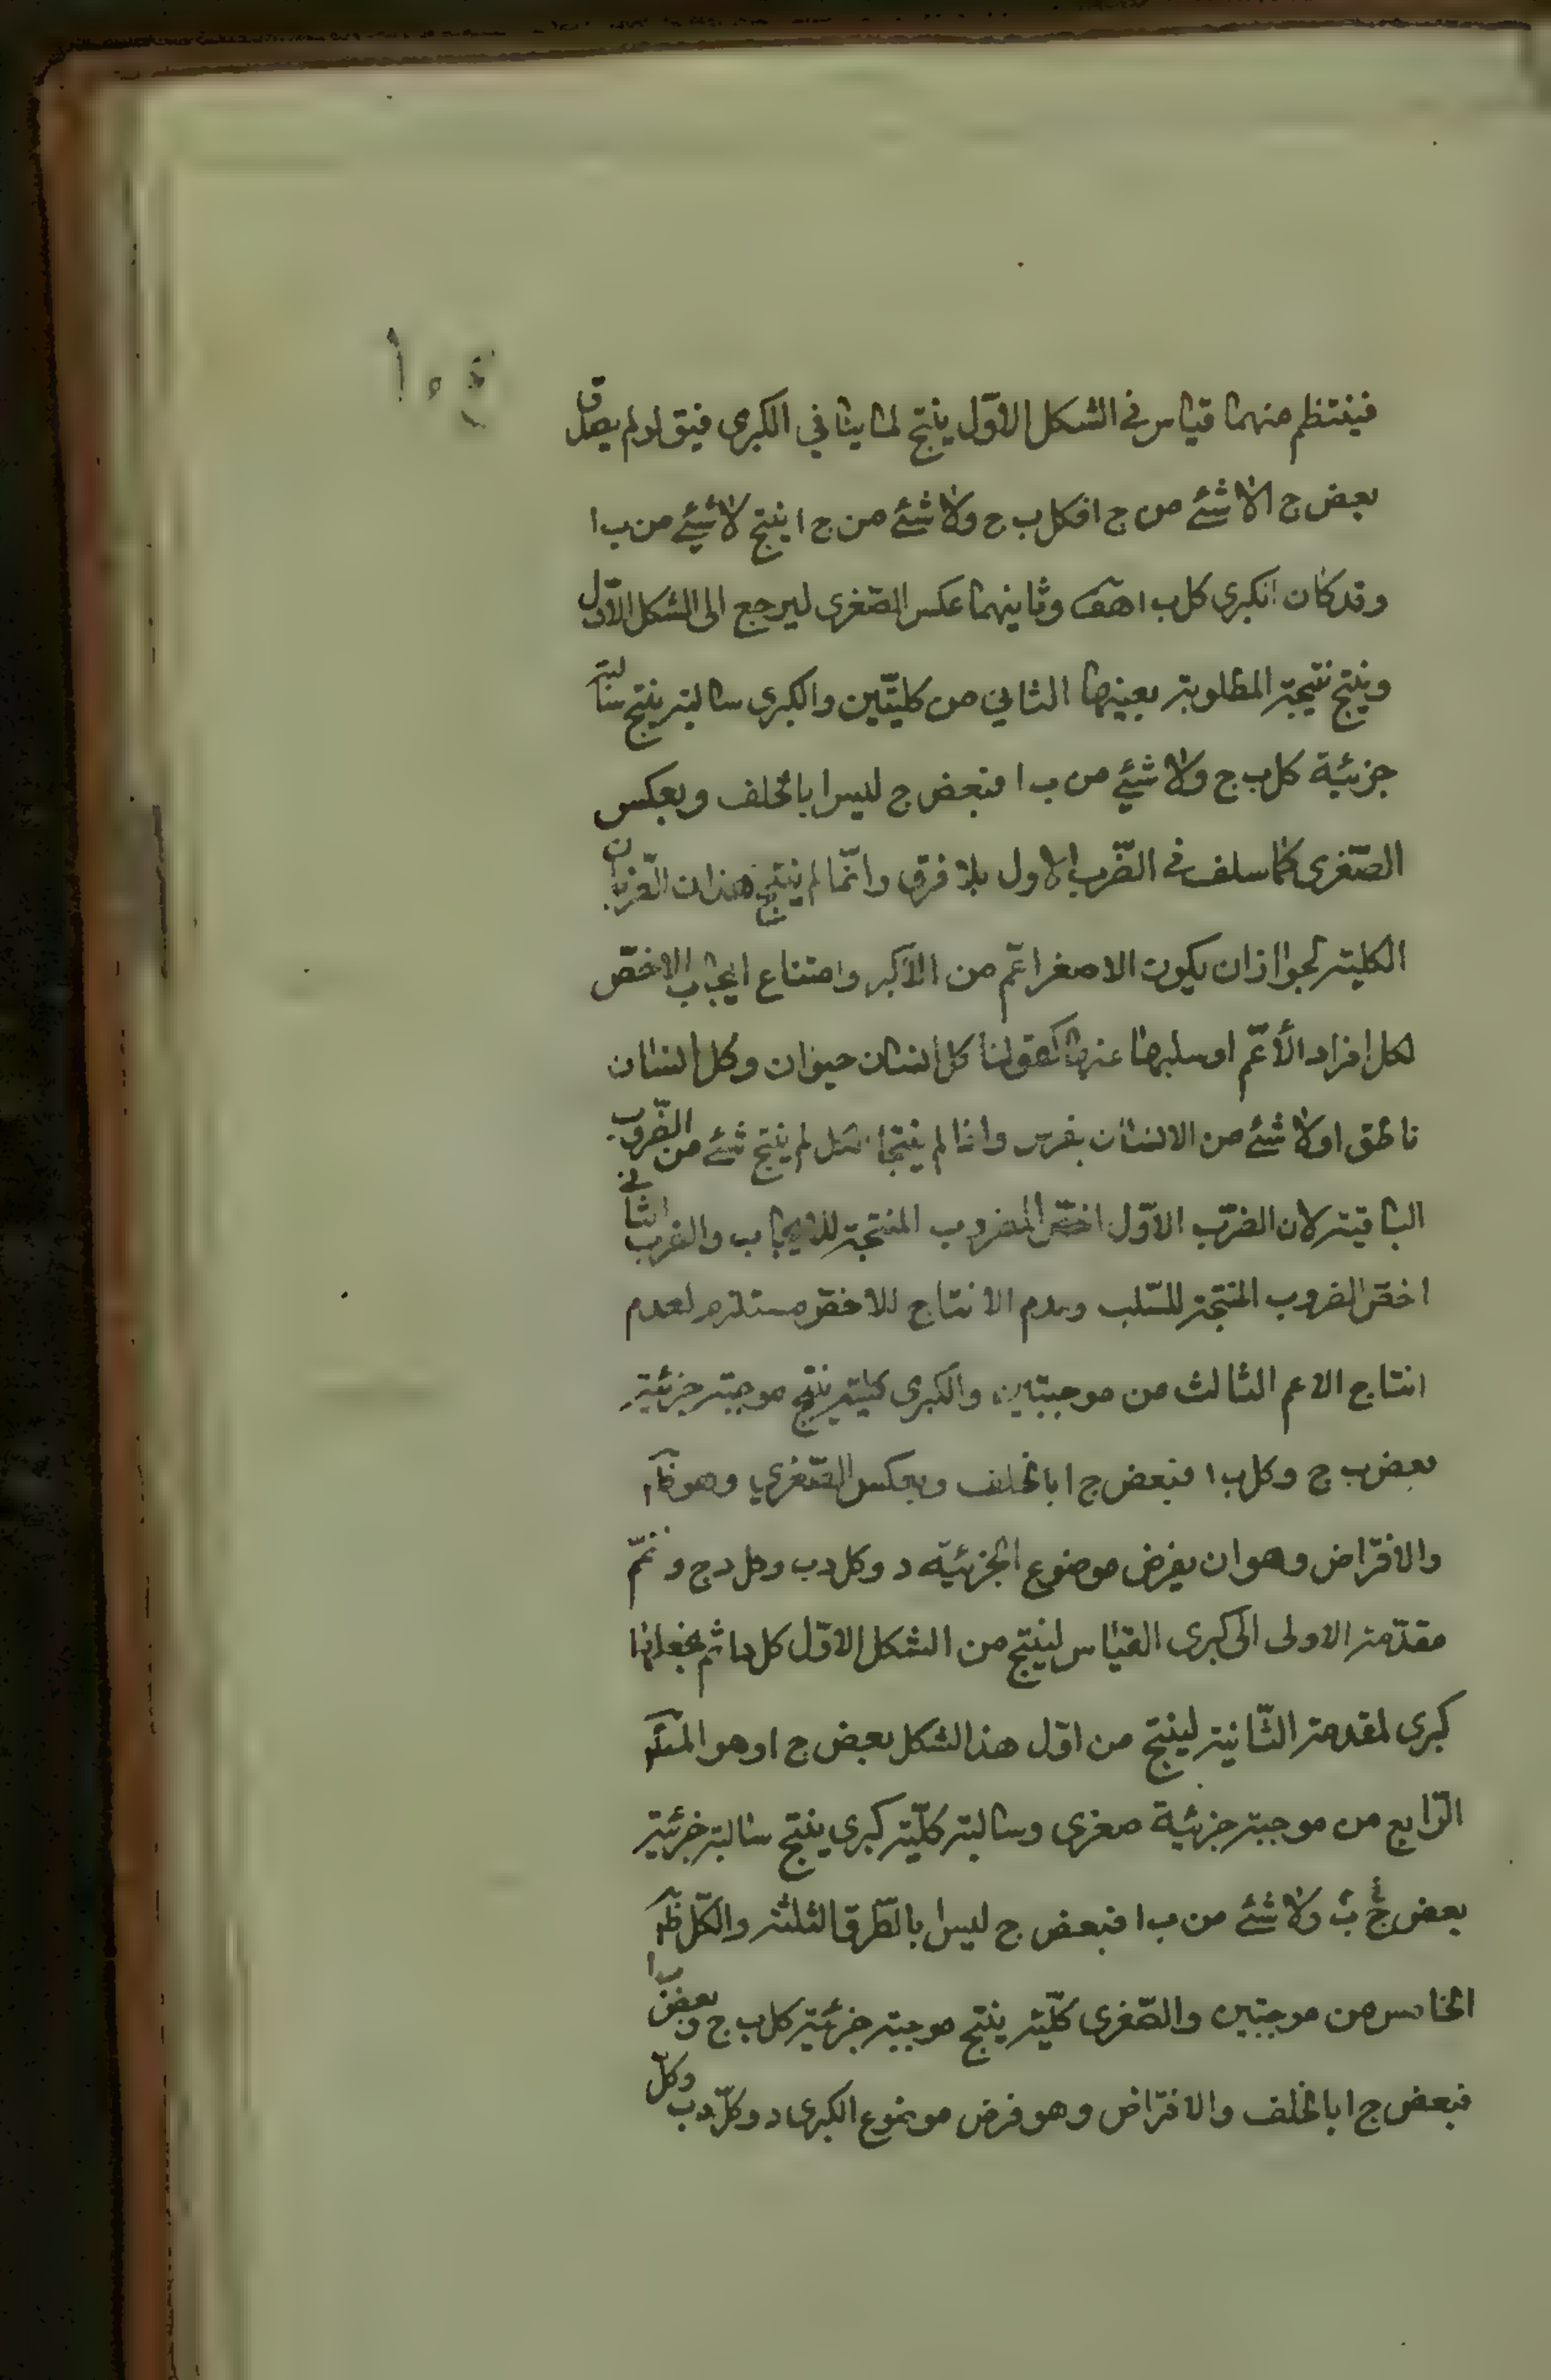 ١٠٤
فينتظم منهما قياس في الشكل الاوّل ينتج لما ينافي الكبرى فيق لو لم يصدق
بعض ج ا لا شئ من ج ا فكل ب ج ولا شئ من ج ا ينتج لا شئ من ب ا
وقد كان الكبرى كل ب ا هف وثانيهما عكس الصّغرى ليرجع الى الشكل الاوّل
وينتج نتيجة المطلوبة بعينها الثاني من كليّتين والكبرى سالبة ينتج سالبة
جزئيّة كل ب ج ولا شئ من ب ا فبعض ج ليس ا بالخلف وبعكس
الصّغرى كما سلف في الضّرب الاول بلا فرق وانّما لم ينتج هذان الضّربان
الكلية لجواز ان يكون الاصغر اعّم من الاكبر وامتناع ايجاب الاخصّ
لكل افراد الأعّم او سلبها عنها كقولنا كل انسان حيوان وكل انسان
ناطق او لا شئ من الانسان بفرس واذا لم ينتجا لم ينتج شئ من الضّروب
الباقية لان الضّرب الاوّل اخصّ الضروب المنتجة للايجاب والضرب الثاني
اخصّ الضروب المنتجة للسّلب وعدم الانتاج للاخصّ مستلزم لعدم
انتاج الاعم الثالث من موجبتين والكبرى كلية ينتج موجبة جزئية
بعض ب ج وكل ب ا فبعض ج ا بالخلف وبعكس الصّغرى وهو ظ
والافتراض وهو ان يفرض موضوع الجزئيّة د وكل د ب وكل د ج و نضّم
مقدّمة الاولى الى كبرى القياس لينتج من الشكل الاوّل كل د ا ثم نجعلها
كبرى لمقدمة الثّانية لينتج من اوّل هذا الشكل بعض ج ا وهو المط
الرّابع من موجبة جزئيّة صغرى وسالبة كلّية كبرى ينتج سالبة جزئية
بعض ج ب ولا شئ من ب ا فبعض ج ليس ا بالطّرق الثلثة والكلّ ظ
الخامس من موجبتين والصّغرى كلّية ينتج موجبة جزئية كل ب ج وبعض ب ا
فبعض ج ا بالخلف والافتراض وهو فرض موضوع الكبرى د وكلّ د ب وكلّ